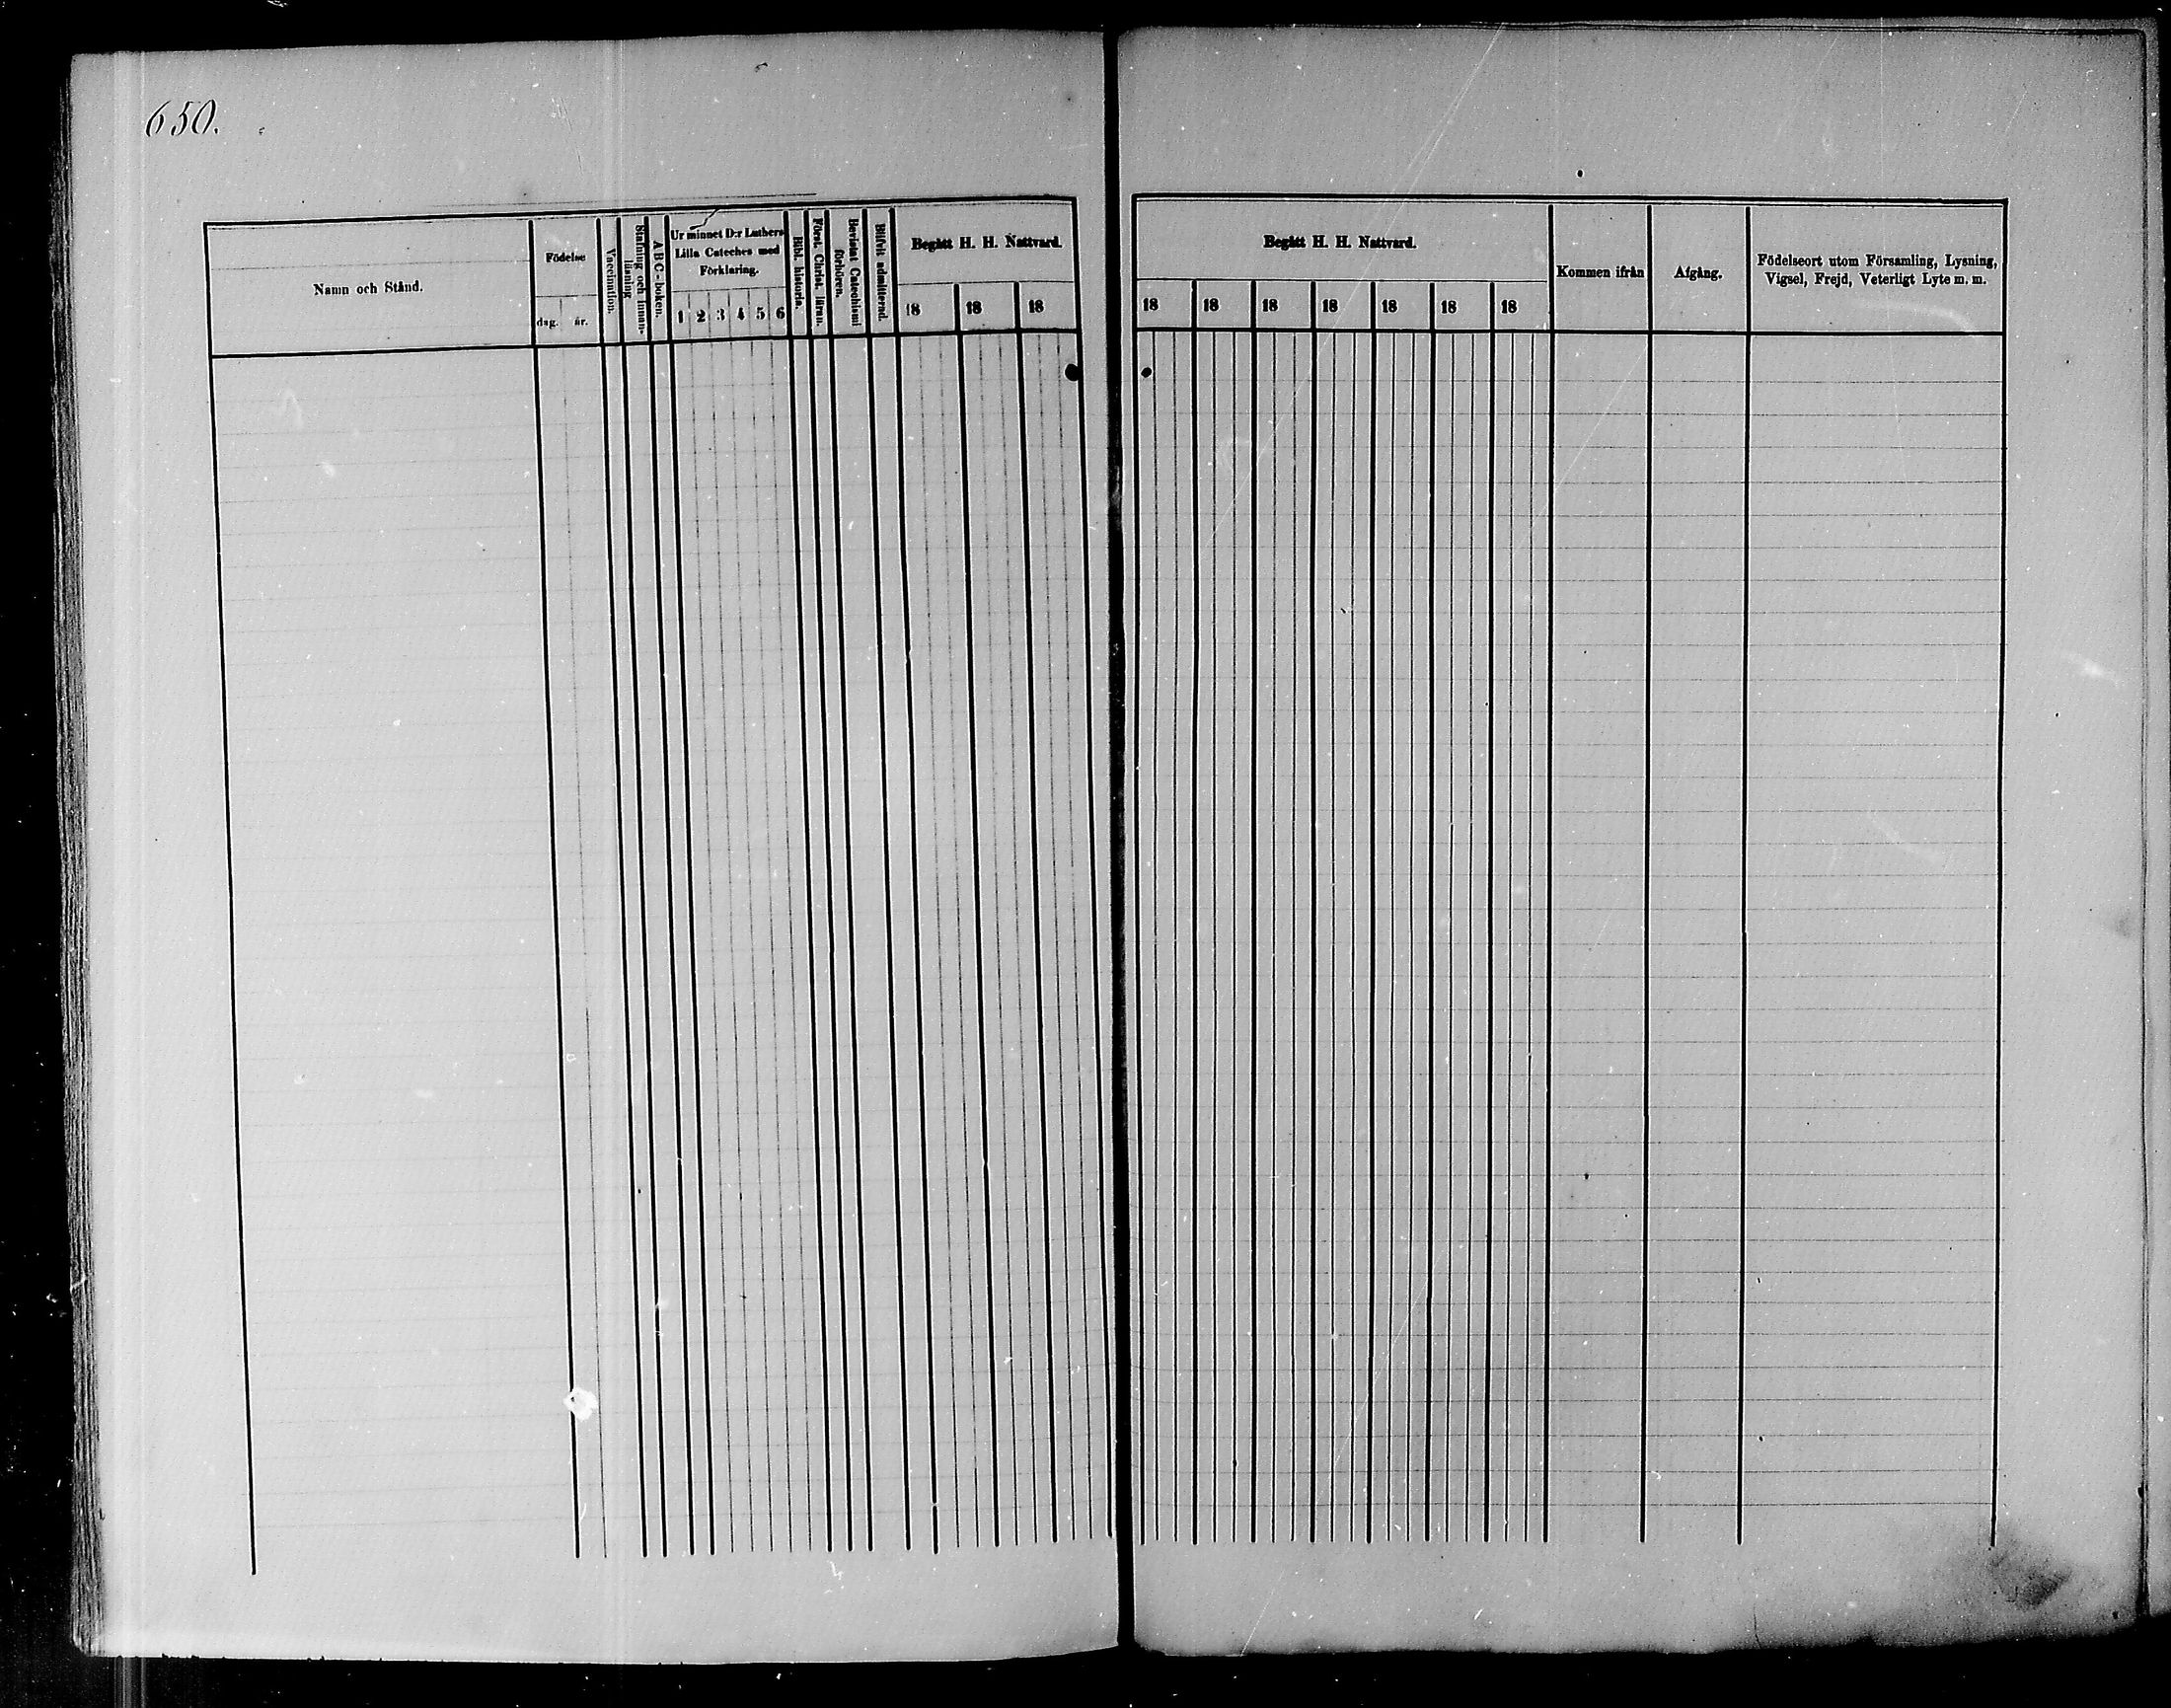 650.
Namn och Stånd.
Födelse
dag. år.
Vaccination.
Stafning och Innan-
läsning
ABC-boken.
Ur minnet D:r Luthers
Lilla Cateches med
Förklaring.
1 2 3 4 5 6
Bibl. historia.
Först. Christ. läran.
Bevistat Catechismi
förhören.
Blifvit admitterad.
Begått H. H. Nattvard.
18 18 18
Begått H. H. Nattvard.
18 18 18 18 18 18 18
Kommen ifrån
Afgång.
Födelseort utom Församling, Lysning,
Vigsel, Frejd, Veterligt Lyte m. m.